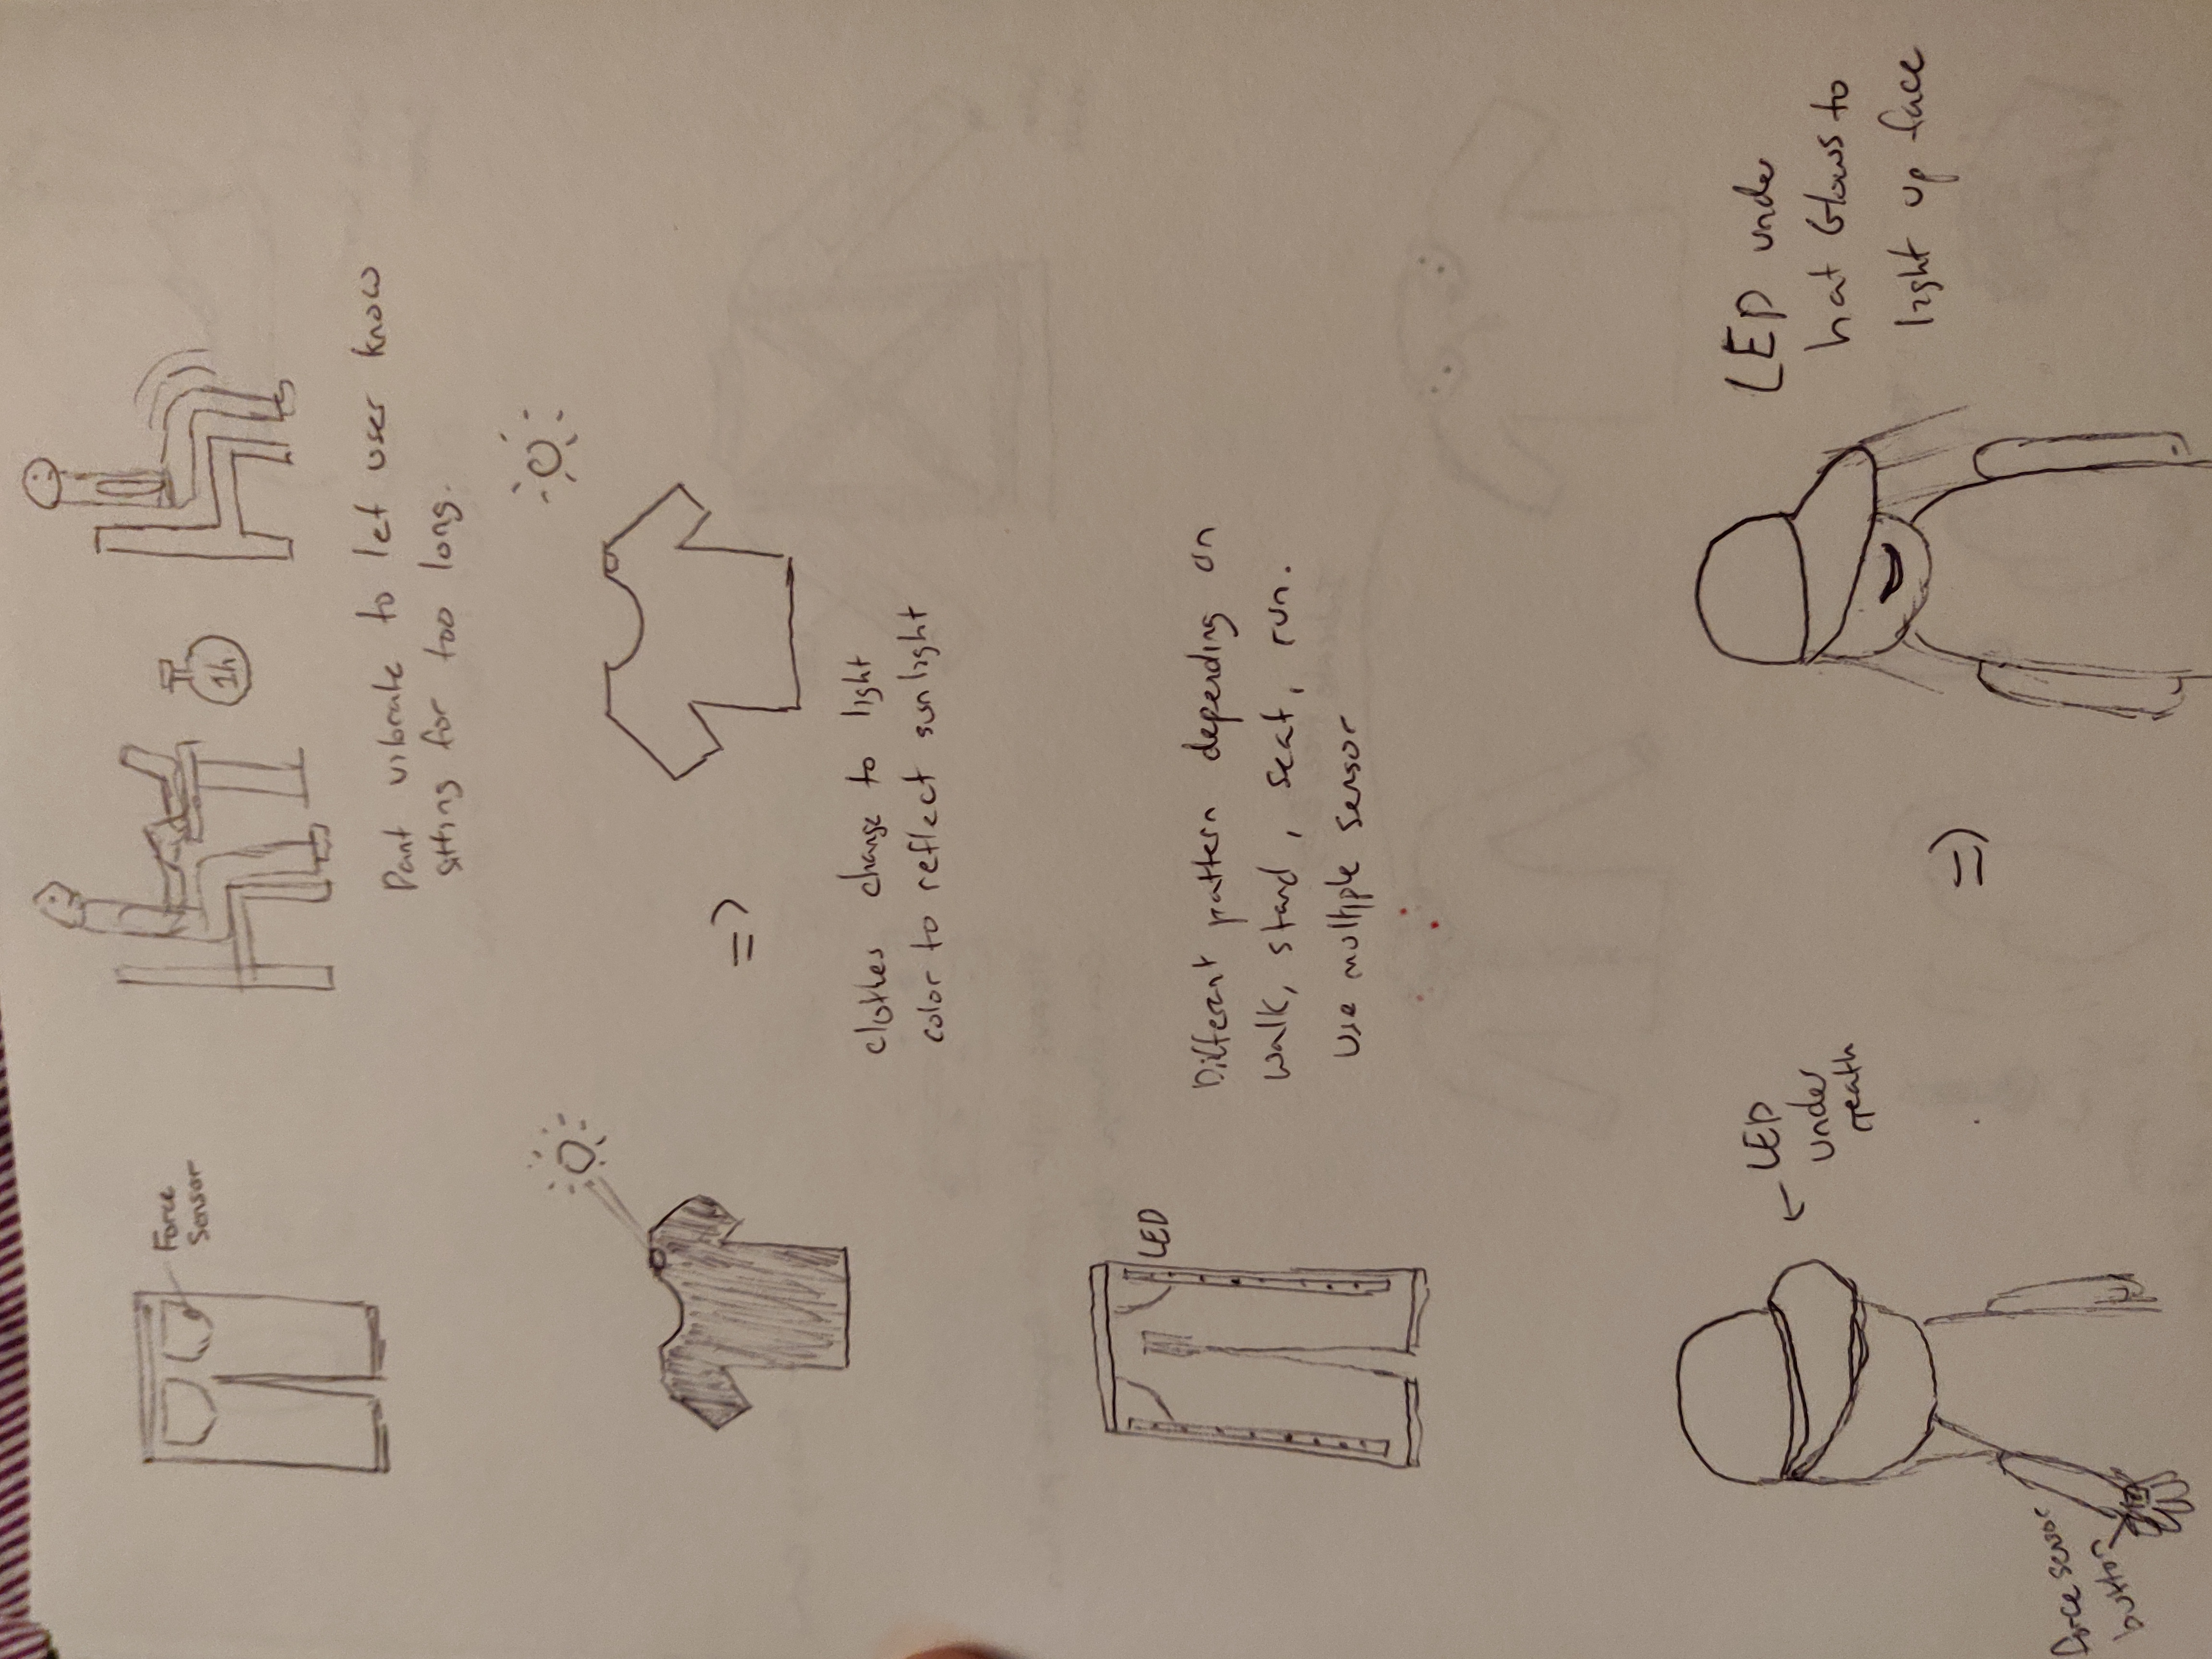 Force
Sensor
1h
Pant vibrate to let user know
sitting for too long.
=>
clothes change to light
color to reflect sunlight
LED
Different pattern depending on
walk, stand, seat, run.
Use multiple sensor
LED
under
neath
=>
LED under
hat Glows to
light up face
force sensor
button